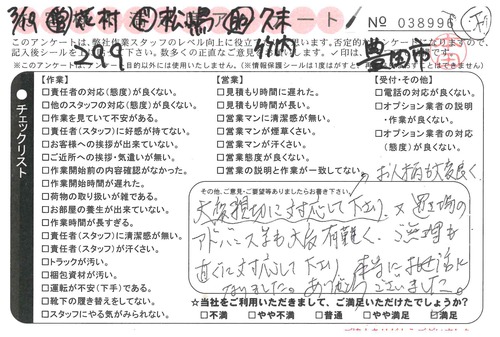 3/19 營 萩村 松嶋 久末
アンケート
竹内
No 038996
2тн9
豊田市
このアンケートは、弊社作業スタッフのレベル向上に役立て
【作業】
□責任者の対応(態度)が良くない。
□他のスタッフの対応(態度)が良くない。
□作業を見ていて不安がある。
□責任者(スタッフ)に好感が持てない。
□お客様への挨拶が出来ていない。
□ご近所への挨拶・気遣いが無い。
□作業開始前の内容確認がなかった。
□作業開始時間が遅れた。
□荷物の取り扱いが雑である。
□お部屋の養生が出来ていない。
□作業時間が長すぎる。
□責任者(スタッフ)に清潔感が無い。
□責任者(スタッフ)が汗くさい。
□トラックが汚い。
□梱包資材が汚い。
□運転が不安(下手)である。
□靴下の履き替えをしてない。
□スタッフにやる気がみられない。
【営業】
□見積もり時間に遅れた。
□見積もり時間が長い。
□営業マンに清潔感が無い。
□営業マンが煙草くさい。
□営業マンが汗くさい。
□営業態度が良くない。
□営業の説明と作業が一致してない。
【受付・その他】
□電話の対応が良くない。
□オプション業者の説明
・作業が良くない。
□オプション業者の対応
(態度)が良くない。
チェックリスト
お人柄も大変良く
その他、ご意見・ご要望等ありましたらお書き下さい。
大変親切に対応して下さり、又置き場の
アドバイス等も大変有難く、ご無理も
直ぐに対応して下さり、本当に お世話に
なりました。ありがとうございました。
☆当社をご利用いただきまして、ご満足いただけたでしょうか?
□不満 □やや不満 □普通 □やや満足 ☑満足